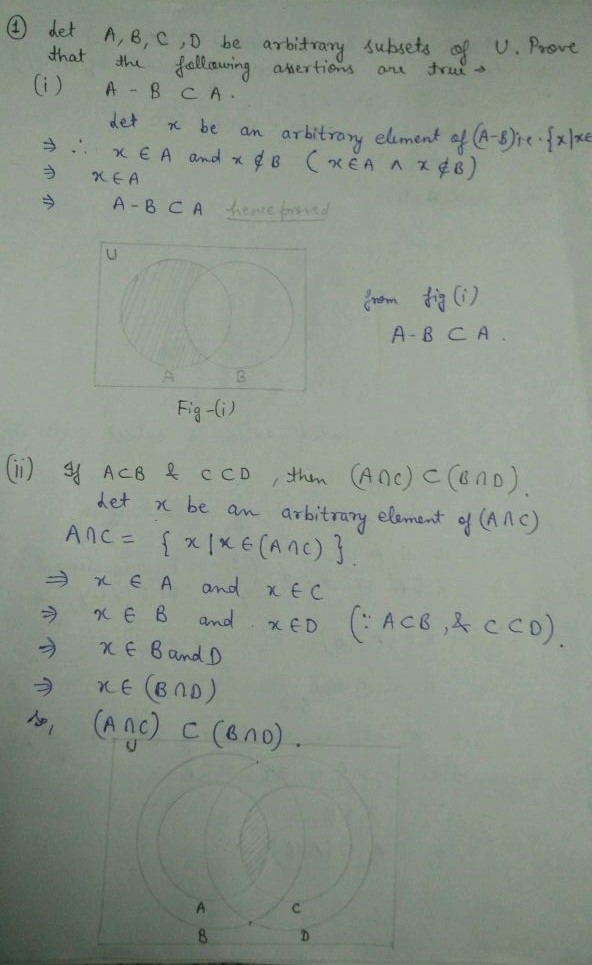 ① Let A, B, C, D be arbitrary subsets of U. Prove
that the following assertions are true →
(i) A - B ⊂ A.
Let x be an arbitrary element of (A-B) i.e. {x|x∈
⇒ ∴ x ∈ A and x ∉ B (x∈A ∧ x ∉ B)
⇒ x ∈ A
⇒ A - B ⊂ A hence proved
U
from fig (i)
A - B ⊂ A.
A B
Fig-(i)
(ii) If A⊂B & C⊂D, then (A∩C) ⊂ (B∩D).
Let x be an arbitrary element of (A∩C)
A∩C = { x | x ∈ (A∩C) }.
⇒ x ∈ A and x ∈ C
⇒ x ∈ B and x ∈ D (∵ A⊂B, & C⊂D).
⇒ x ∈ B and D
⇒ x ∈ (B∩D)
So, (A∩C) ⊂ (B∩D).
U
A C
B D